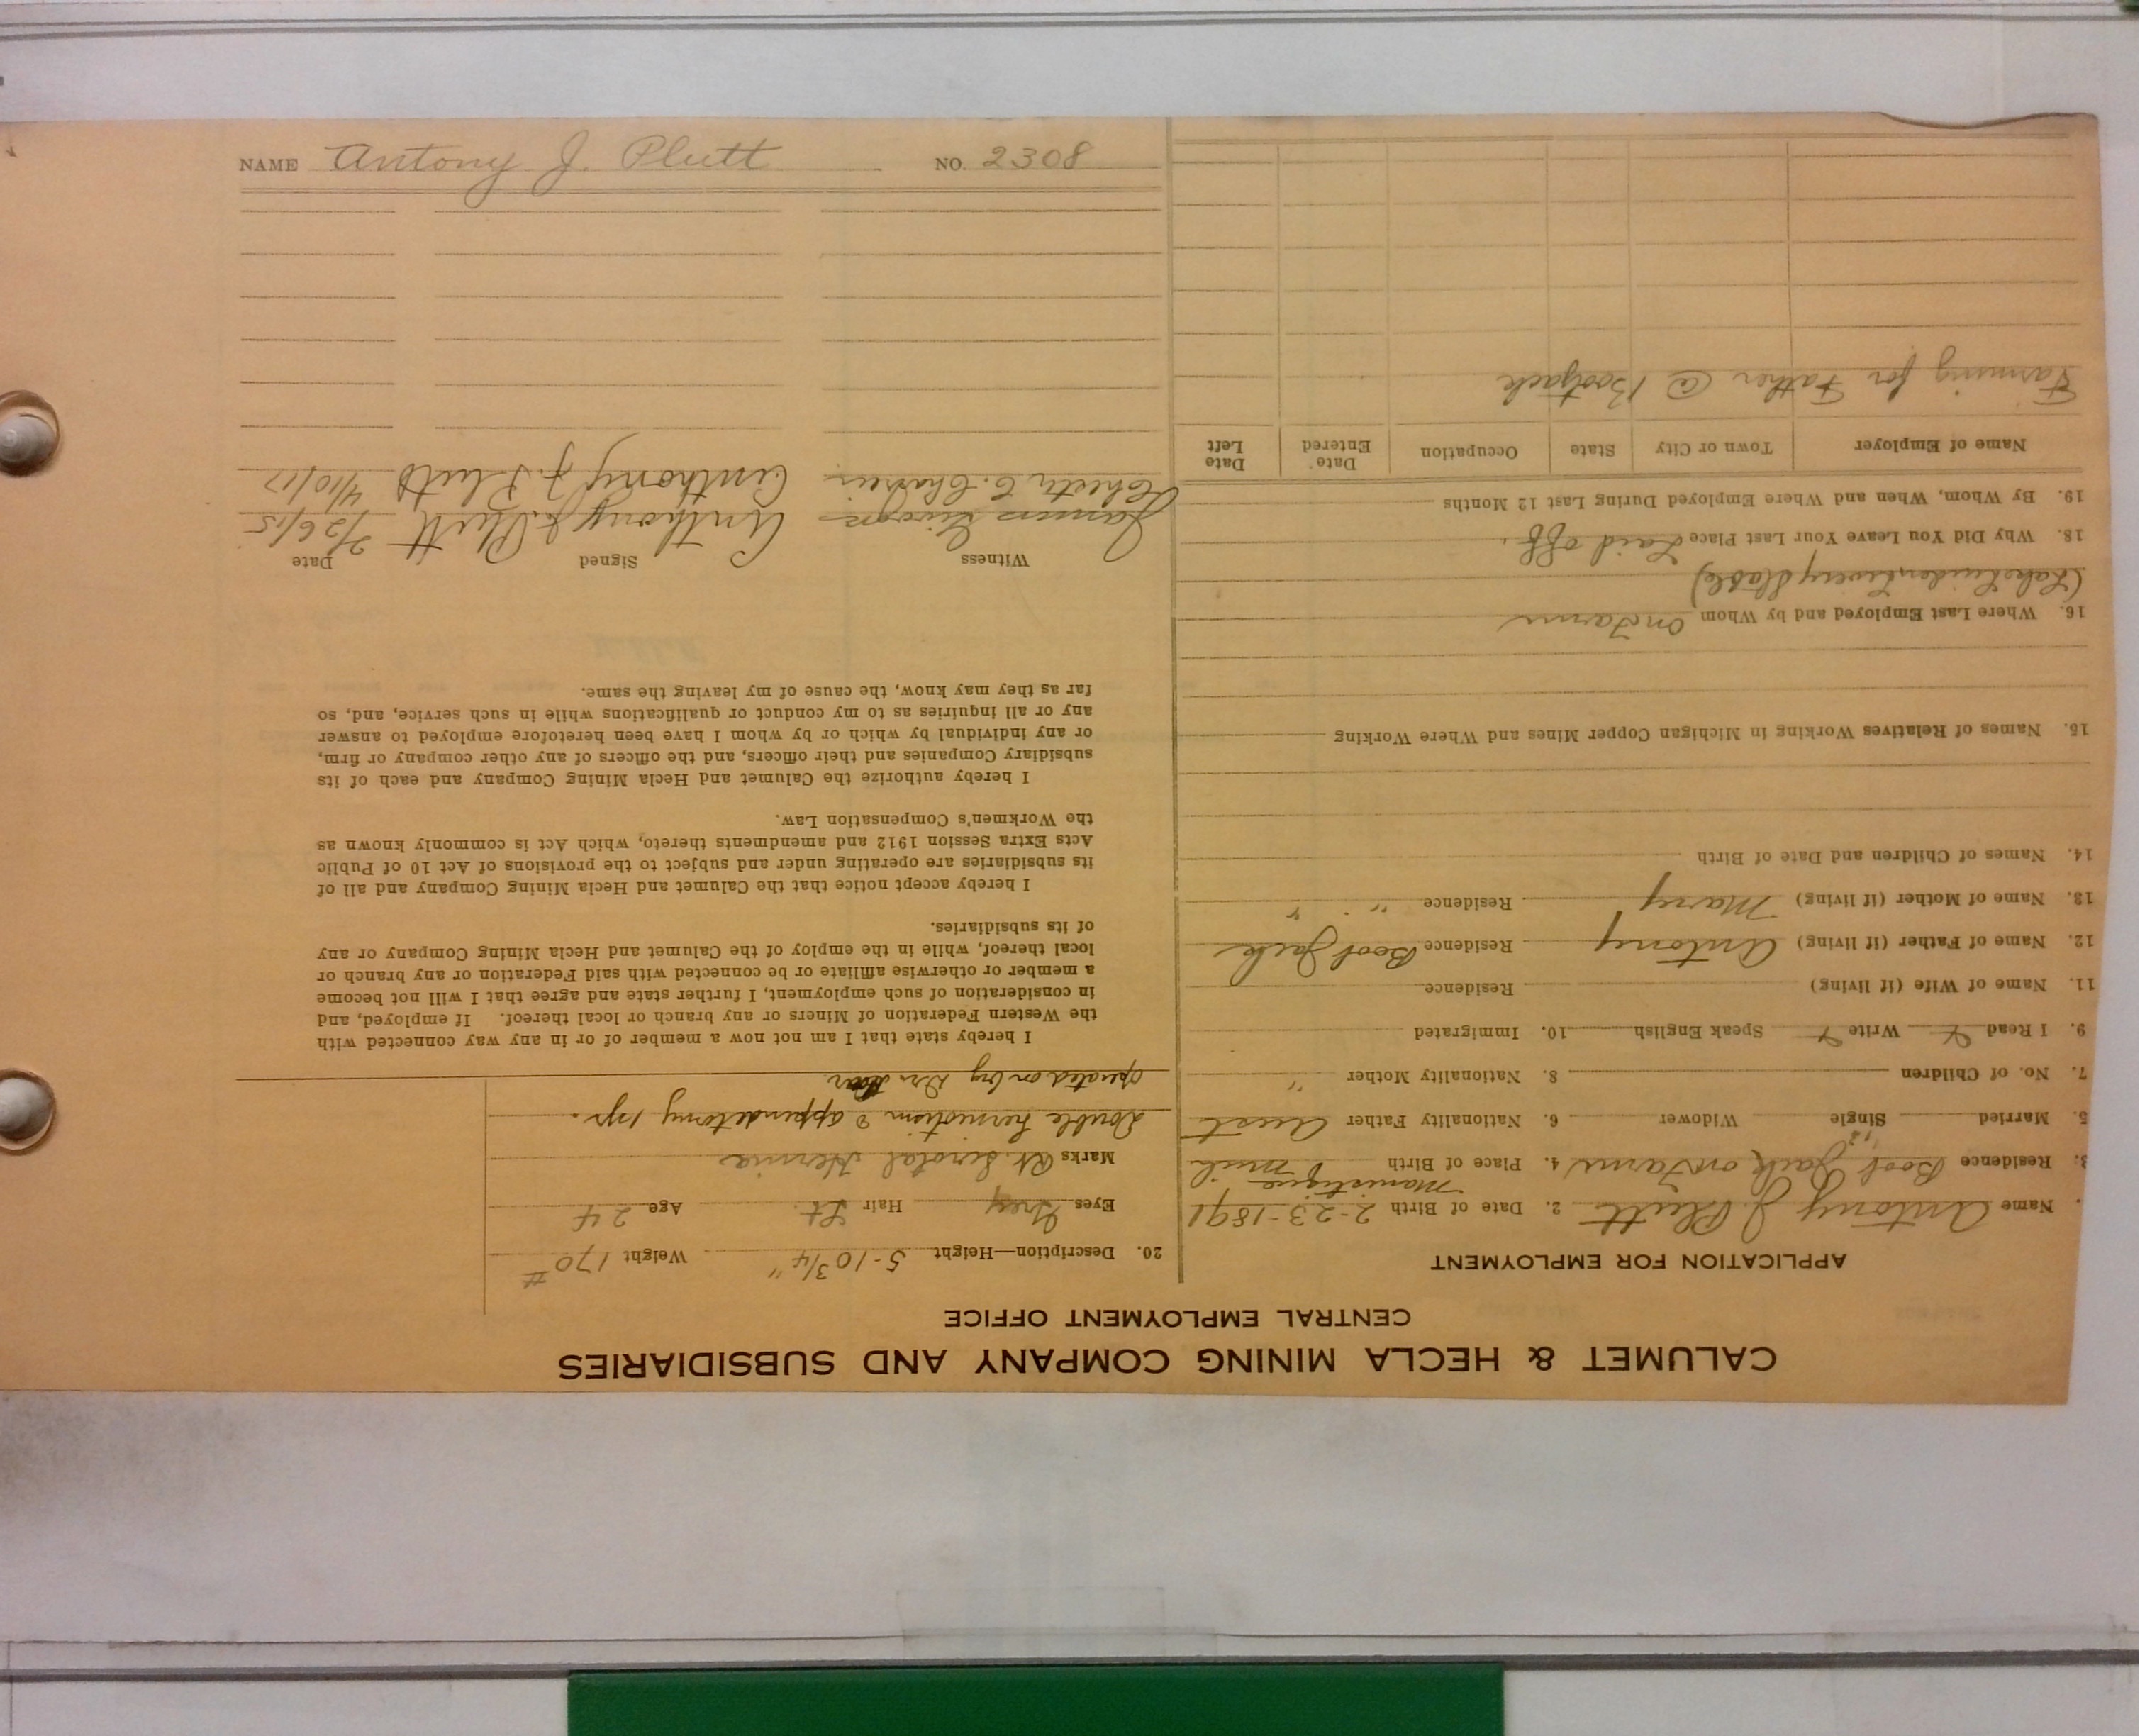 NAME Antony J. Plutt NO. 2308
CALUMET & HECLA MINING COMPANY AND SUBSIDIARIES
CENTRAL EMPLOYMENT OFFICE
APPLICATION FOR EMPLOYMENT
Name Antony J. Plutt 2. Date of Birth 2-23-1891
3. Residence Boot Jack on Farm 4. Place of Birth Manistique Mich
5. Married Single Widower 6. Nationality Father Aust
7. No. of Children 8. Nationality Mother "
9. I Read Y Write Y Speak English 10. Immigrated
11. Name of Wife (if living) Residence
12. Name of Father (if living) Antony Residence Boot Jack
13. Name of Mother (if living) Mary Residence " "
14. Names of Children and Date of Birth
15. Names of Relatives Working in Michigan Copper Mines and Where Working
16. Where Last Employed and by Whom On Farm
(Lake Linden Livery Stable)
18. Why Did You Leave Your Last Place Laid off.
19. By Whom, When and Where Employed During Last 12 Months
Name of Employer Town or City State Occupation Date Entered Date Left
Farming for Father @ Bootjack
20. Description—Height 5-10 3/4" Weight 170 #
Eyes Grey Hair Lt. Age 24
Marks Rt. Scrotal Hernia
Double herniotism & appendetomy 1 yr.
operated on by Dr.
I hereby state that I am not now a member of or in any way connected with
the Western Federation of Miners or any branch or local thereof. If employed, and
in consideration of such employment, I further state and agree that I will not become
a member or otherwise affiliate or be connected with said Federation or any branch or
local thereof, while in the employ of the Calumet and Hecla Mining Company or any
of its subsidiaries.
I hereby accept notice that the Calumet and Hecla Mining Company and all of
its subsidiaries are operating under and subject to the provisions of Act 10 of Public
Acts Extra Session 1912 and amendments thereto, which Act is commonly known as
the Workmen's Compensation Law.
I hereby authorize the Calumet and Hecla Mining Company and each of its
subsidiary Companies and their officers, and the officers of any other company or firm,
or any individual by which or by whom I have been heretofore employed to answer
any or all inquiries as to my conduct or qualifications while in such service, and, so
far as they may know, the cause of my leaving the same.
Witness Signed Date
James Anthony J. Plutt 7/26/15
Anthony J. Plutt 4/10/17